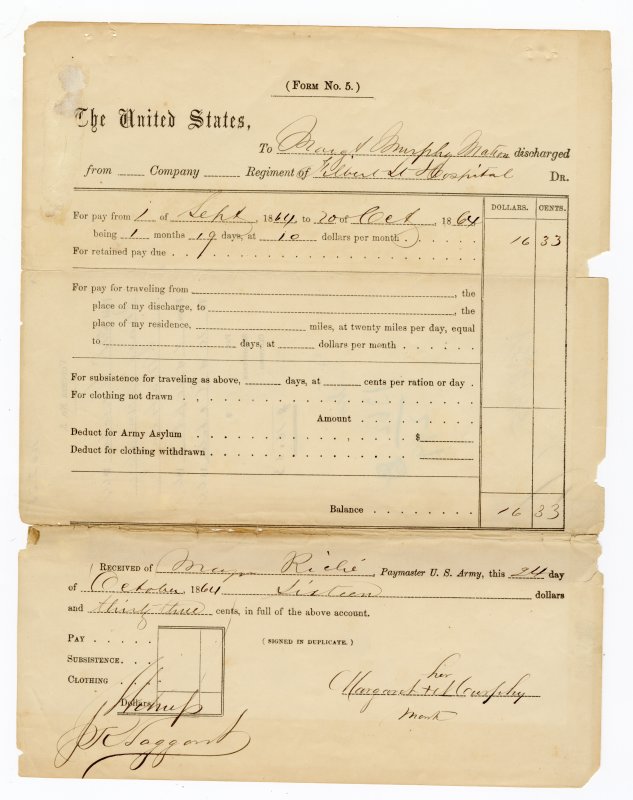 (Form No. 5.)
The United States,
To Marg't Murphy Matron discharged
from Company Regiment of Filbert St Hospital Dr.
DOLLARS. CENTS.
For pay from 1 of Sept 1864, to 20 of Oct, 1864
being 1 months 19 days, at 10 dollars per month. 16 33
For retained pay due
For pay for traveling from , the
place of my discharge, to , the
place of my residence, miles, at twenty miles per day, equal
to days, at dollars per month
For subsistence for traveling as above, days, at cents per ration or day
For clothing not drawn
Amount
Deduct for Army Asylum $
Deduct for clothing withdrawn
Balance 16 33
Received of Major Riché, Paymaster U. S. Army, this 24 day
of October 1864 Sixteen dollars
and thirty three cents, in full of the above account.
Pay
(SIGNED IN DUPLICATE.)
Subsistence
Clothing
her
Margaret X Murphy
mark
Dollars
J R Haggart